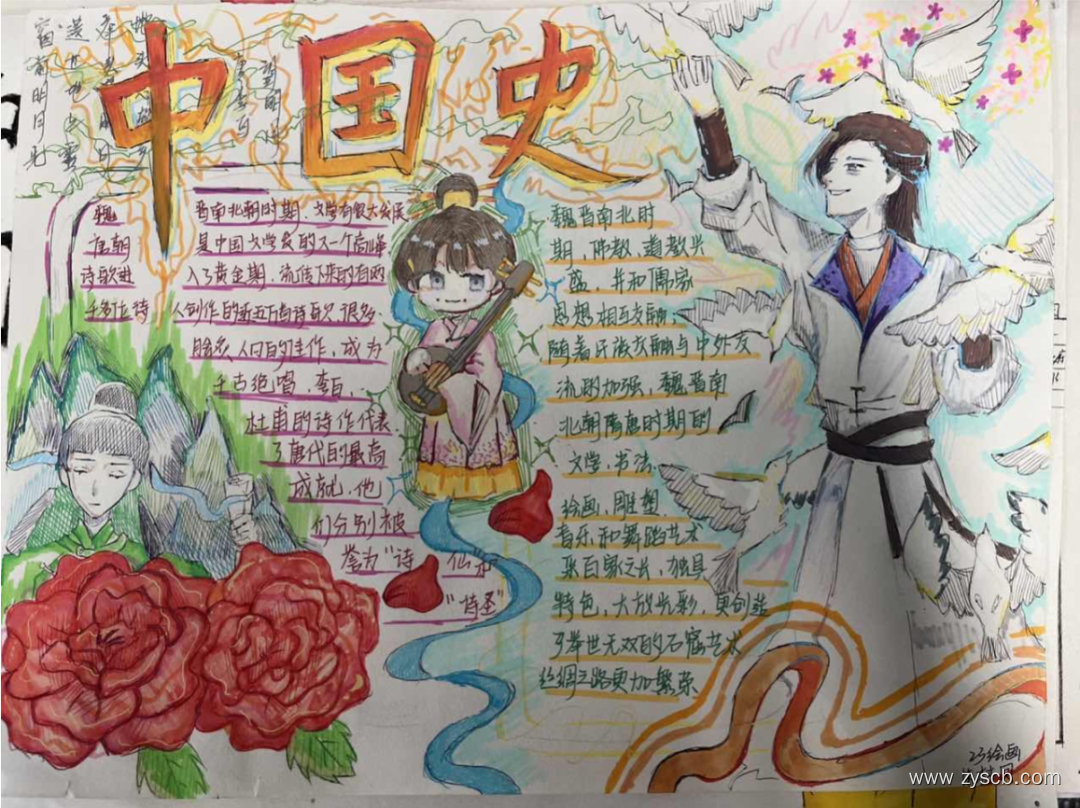 中国史
魏晋南北朝时期,文学有很大发展
唐朝是中国文学史的又一个高峰
诗歌进入了黄金期,流传下来的有两
千多位诗人创作的近五万首诗歌,很多
脍炙人口的佳作,成为
千古绝唱,李白,
杜甫的诗作代表
了唐代的最高
成就,他
们分别被
誉为“诗仙和
“诗圣”
魏晋南北时
期,佛教,道教兴
盛,并和儒家
思想相互交融,
随着民族交融与中外交
流的加强,魏晋南
北朝隋唐时期的
文学,书法
绘画,雕塑
音乐和舞蹈艺术
采百家之长,独具
特色,大放光彩,更创造
了举世无双的石窟艺术
丝绸之路更加繁荣
23绘画
www.zyscb.com